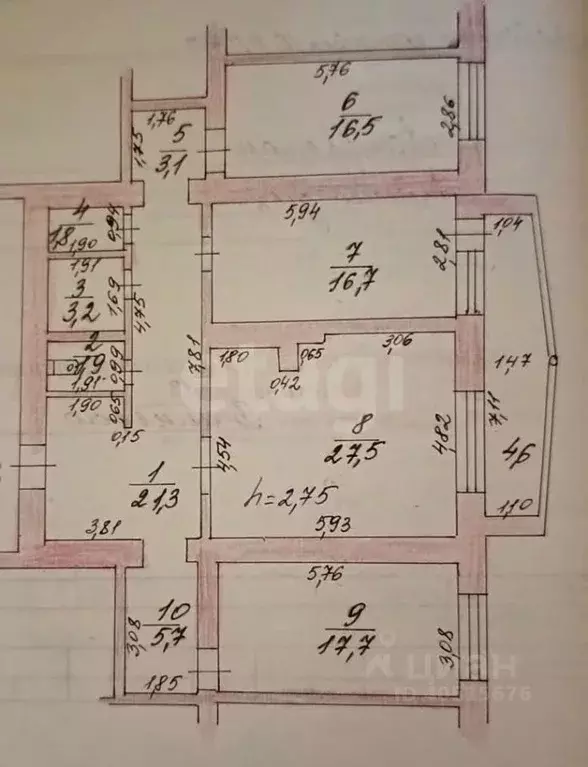 5,76
6
16,5
2,86
1,76
5
3,1
1,75
4
1,8
1,90
0,94
5,94
7
16,7
2,81
1,04
1,91
3
3,2
1,69
4,75
2
1,9
1,91
0,99
1,90
0,65
0,15
7,81
1,80
0,42
0,65
3,06
1,47
7,11
4,6
1,10
etagi
8
27,5
4,82
4,54
h=2,75
5,93
1
21,3
3,81
5,76
9
17,7
3,08
10
5,7
3,08
1,85
циан